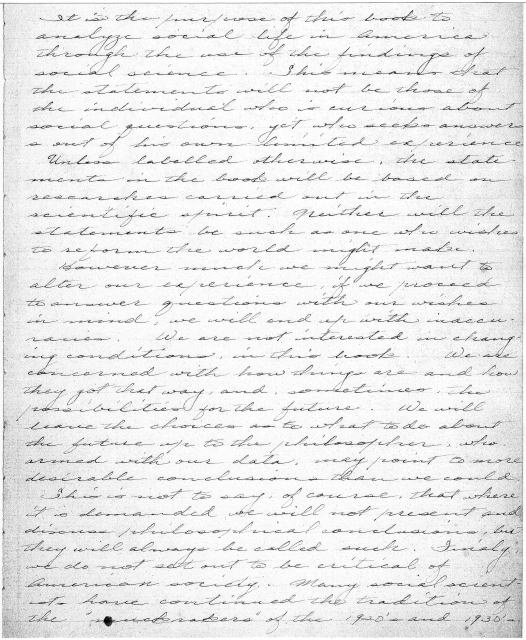 It is the purpose of this book to
analyze social life in America
through the use of the findings of
social science. This means that
the statements will not be those of
the individual who is curious about
social questions, yet who seeks answer
s out of his own limited experience
Unless labelled otherwise, the state-
ments in the book will be based on
researches carried out in the
scientific spirit. Neither will the
statements be such as one who wishes
to reform the world might make.
However much we might want to
alter our experience, if we proceed
to answer questions with our wishes
in mind, we will end up with inaccu-
racies. We are not interested in chang-
ing conditions, in this book. We are
concerned with how things are and how
they got that way, and, sometimes, the
possibilities for the future. We will
leave the choices as to what to do about
the future up to the philosopher, who
armed with our data, may point to more
desirable conclusions than we could
This is not to say, of course, that where
it is demanded, we will not present and
discuss philosophical conclusions, but
they will always be called such. Finaly,
we do not set out to be critical of
American society. Many social scient-
ists have continued the tradition of
the "muckrakers" of the 1920's and 1930's